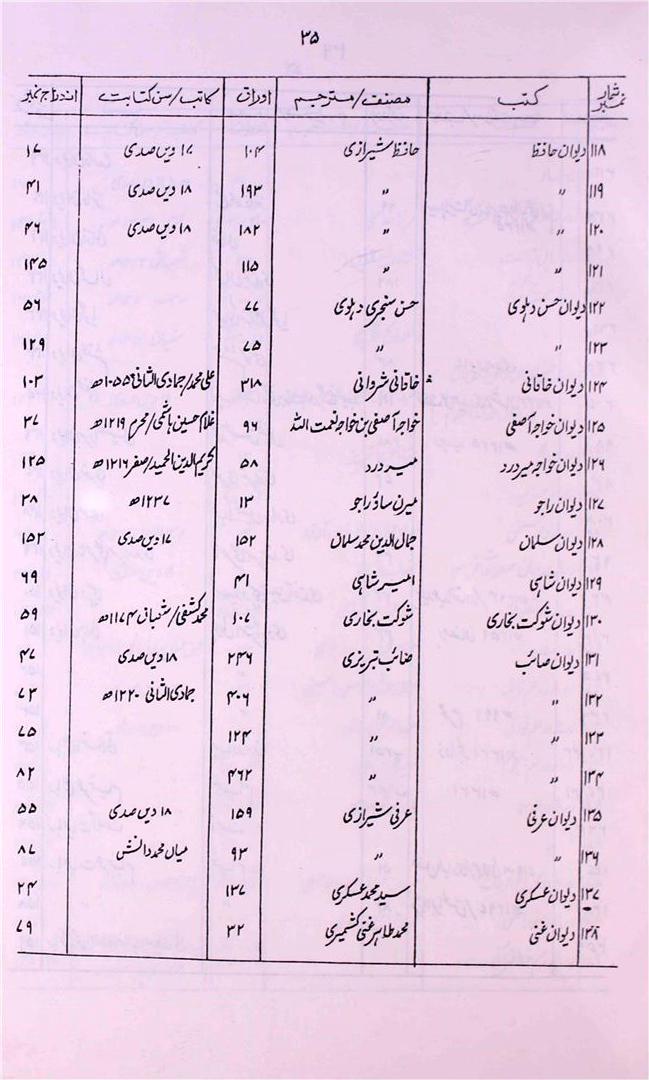 ۳۵
شمار نمبر | کتب | مصنف/مترجم | اوراق | کاتب/سن کتابت | اندراج نمبر
۱۱۸ | دیوان حافظ | حافظ شیرازی | ۱۰۴ | ۱۷ ویں صدی | ۱۷
۱۱۹ | 〃 | 〃 | ۱۹۳ | ۱۸ ویں صدی | ۴۱
۱۲۰ | 〃 | 〃 | ۱۸۲ | ۱۸ ویں صدی | ۴۶
۱۲۱ | 〃 | 〃 | ۱۱۵ | | ۱۴۵
۱۲۲ | دیوان حسن دہلوی | حسن سنجری دہلوی | ۷۷ | | ۵۶
۱۲۳ | 〃 | 〃 | ۷۵ | | ۱۲۹
۱۲۴ | دیوان خاقانی | خاقانی شروانی | ۳۱۸ | علی محمد/جمادی الثانی ۱۰۵۶ھ | ۱۰۳
۱۲۵ | دیوان خواجہ آصفی | خواجہ آصفی بن خواجہ نعمت اللہ | ۹۶ | غلام حسین ہاشمی/محرم ۱۲۱۹ھ | ۳۷
۱۲۶ | دیوان خواجہ میر درد | میر درد | ۵۸ | کریم الدین الحمید/صفر ۱۲۱۶ھ | ۱۲۵
۱۲۷ | دیوان راجو | میرن ساؤ راجو | ۱۳ | ۱۲۳۷ھ | ۳۸
۱۲۸ | دیوان سلمان | جمال الدین محمد سلمان | ۱۵۲ | ۱۷ ویں صدی | ۱۵۲
۱۲۹ | دیوان شاہی | امیر شاہی | ۴۱ | | ۶۹
۱۳۰ | دیوان شوکت بخاری | شوکت بخاری | ۱۰۷ | محمد کشفی/شعبان ۱۱۷۴ھ | ۵۹
۱۳۱ | دیوان صائب | صائب تبریزی | ۲۴۶ | ۱۸ ویں صدی | ۴۷
۱۳۲ | 〃 | 〃 | ۴۰۶ | جمادی الثانی ۱۲۲۰ھ | ۷۳
۱۳۳ | 〃 | 〃 | ۱۲۴ | | ۷۵
۱۳۴ | 〃 | 〃 | ۴۶۲ | | ۸۲
۱۳۵ | دیوان عرفی | عرفی شیرازی | ۱۵۹ | ۱۸ ویں صدی | ۵۵
۱۳۶ | 〃 | 〃 | ۹۳ | میاں محمد دانش | ۸۷
۱۳۷ | دیوان عسکری | سید محمد عسکری | ۱۳۷ | | ۲۴
۱۳۸ | دیوان غنی | محمد طاہر غنی کشمیری | ۳۲ | | ۷۹